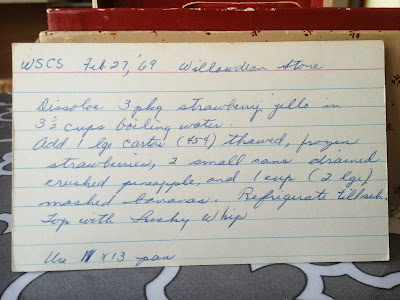 WSCS Feb 27, '69 Willowdean Stone
Dissolve 3 pkg strawberry jello in
3 1/2 cups boiling water.
Add 1 lge carton (45¢) thawed, frozen
strawberries, 2 small cans drained
crushed pineapple, and 1 cup (2 lge)
mashed bananas. Refrigerate till set.
Top with Lucky Whip
Use x 13 pan